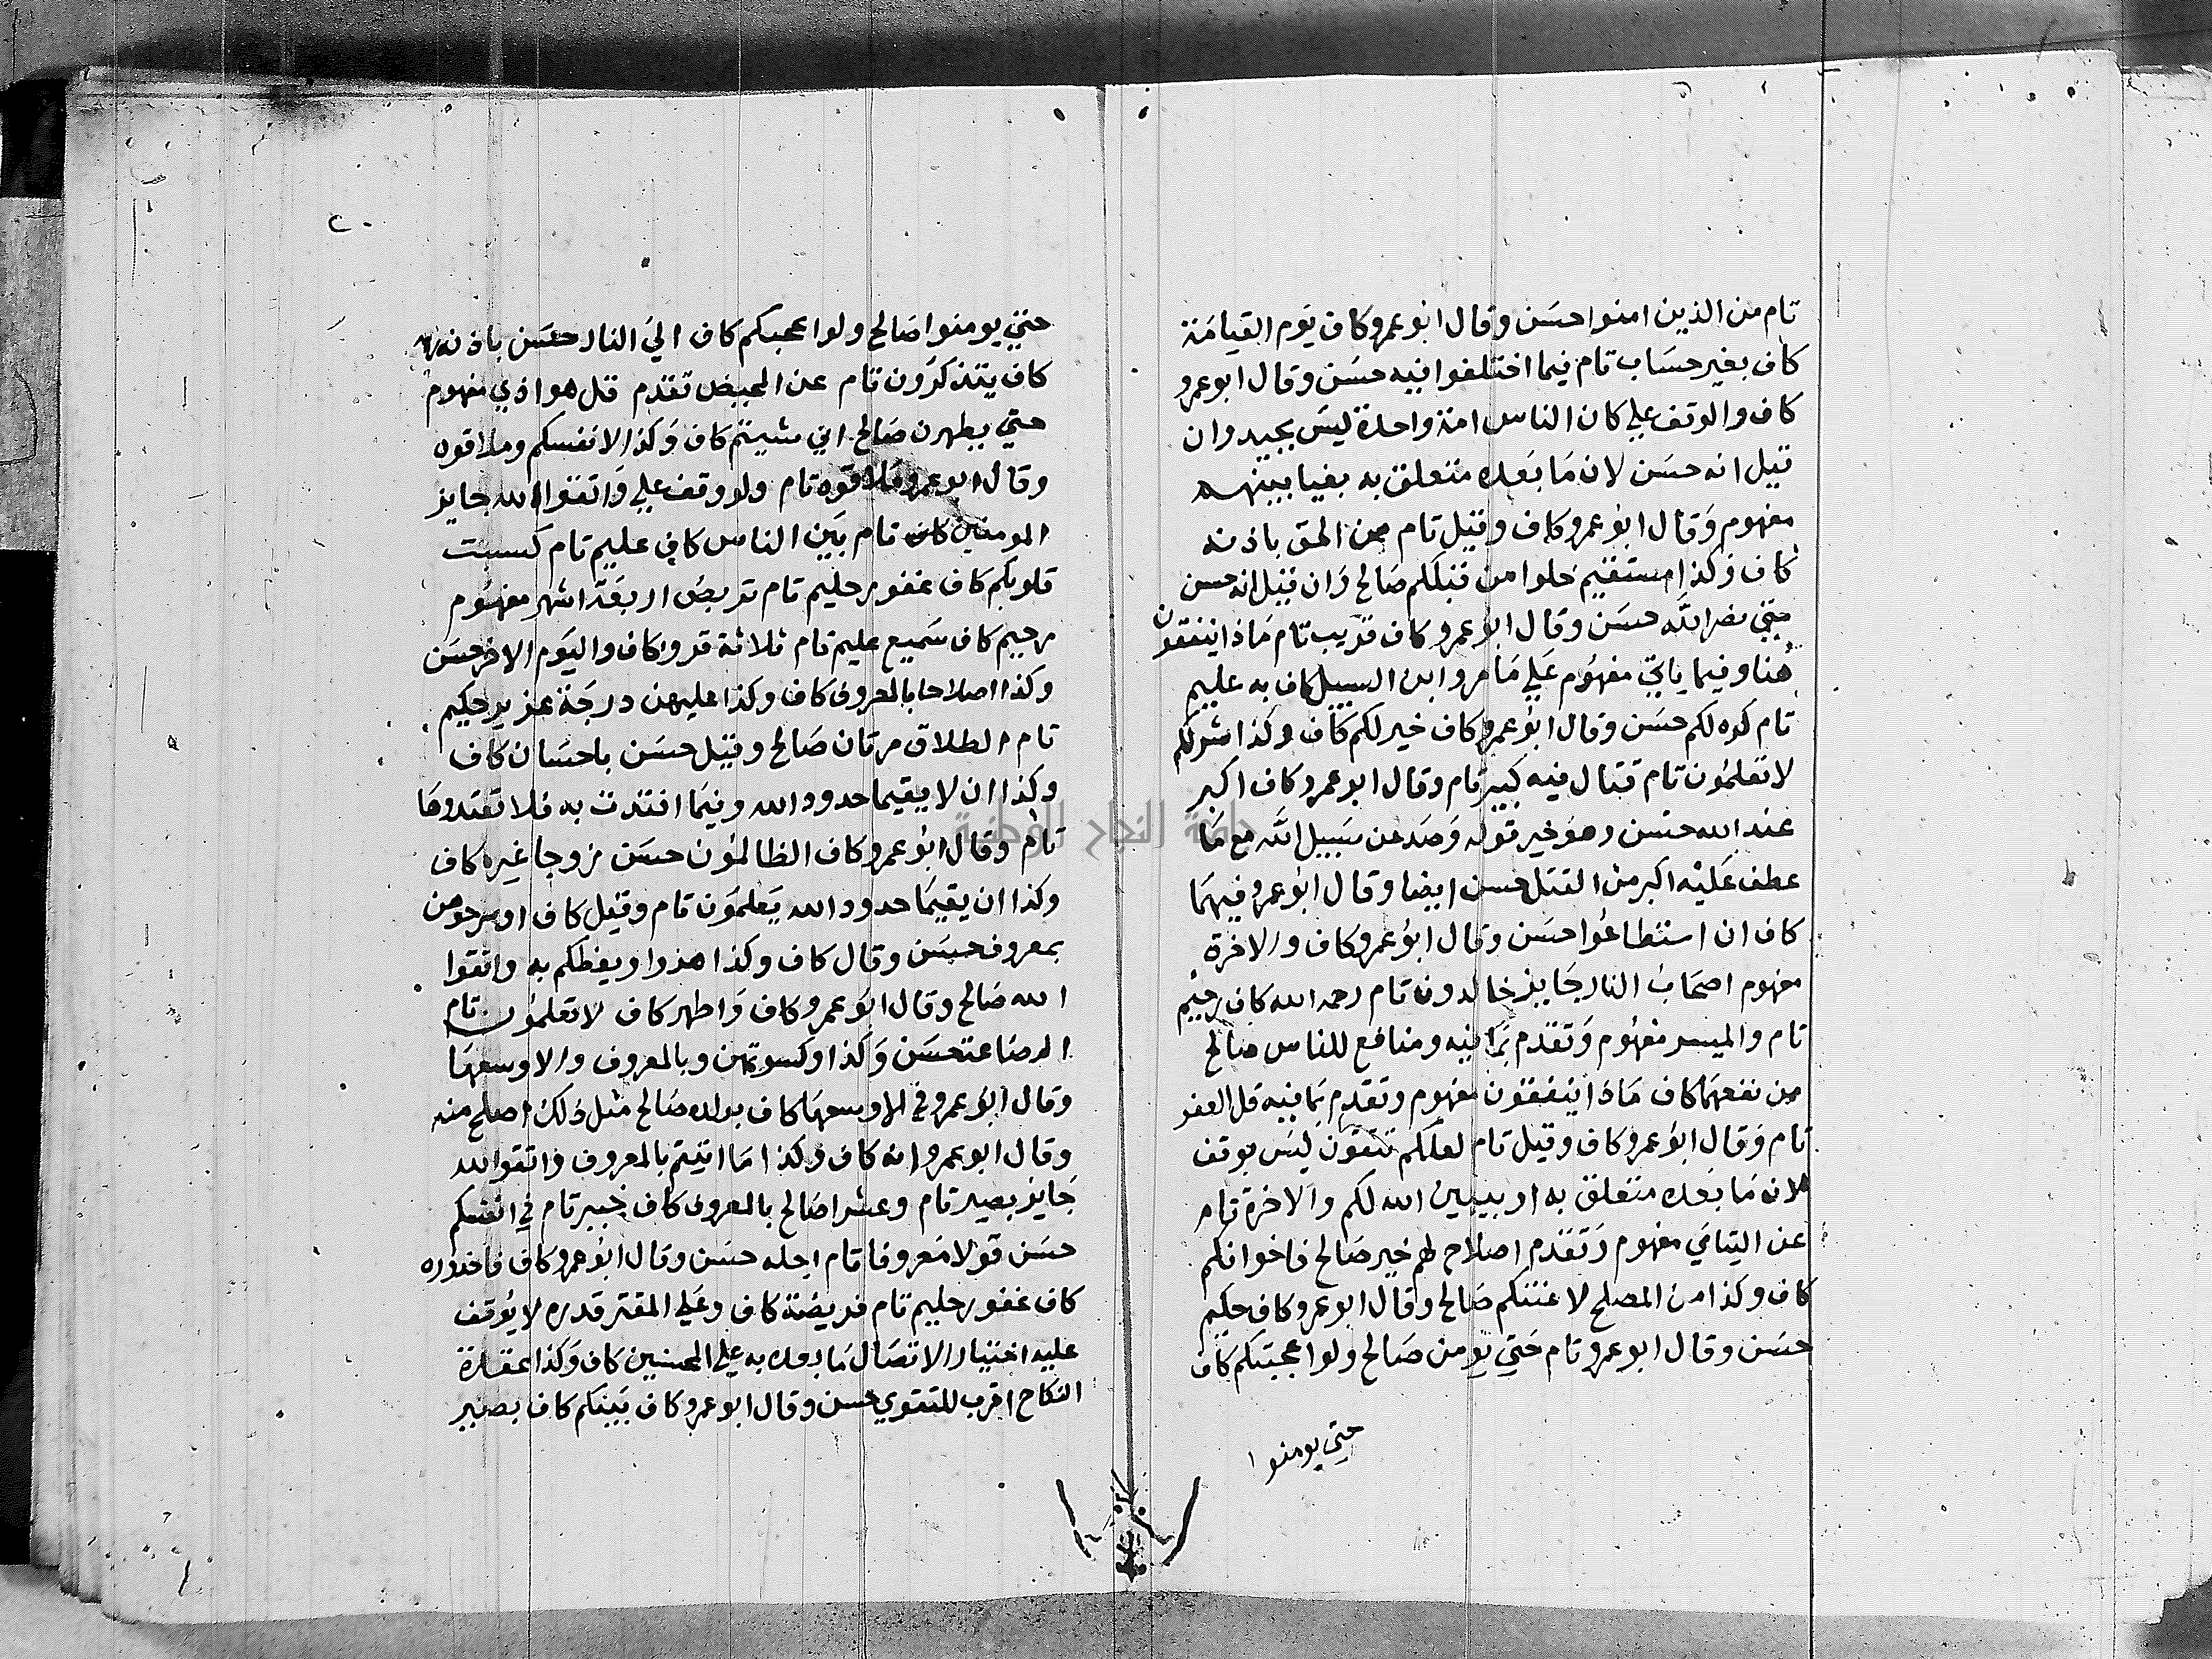 تام من الذين امنوا حسن وقال ابو عمرو كاف يوم القيامة
كاف بغير حساب تام فيما اختلفوا فيه حسن وقال ابو عمرو
كاف والوقف علي كان الناس امة واحدة ليس بجيد وان
قيل انه حسن لان ما بعده متعلق به بغيا بينهم
مفهوم وقال ابو عمرو كاف وقيل تام من الحق باذنه
كاف وكذا مستقيم خلوا من قبلكم صالح وان قيل انه حسن
متي نصر الله حسن وقال ابو عمرو كاف قريب تام ماذا ينفقون
هنا وفيما ياتي مفهوم علي ما مر وابن السبيل كاف به عليم
تام كره لكم حسن وقال ابو عمرو كاف خير لكم كاف وكذا شر لكم
لا تعلمون تام قتال فيه كبير تام وقال ابو عمرو كاف اكبر
عند الله حسن وهو خير قوله وصد عن سبيل الله مع ما
عطف عليه اكبر من القتل حسن ايضا وقال ابو عمرو فيهما
كاف ان استطاعوا حسن وقال ابو عمرو كاف والاخرة
مفهوم اصحاب النار جايز خالدون تام رحمه الله كاف رحيم
تام والميسر مفهوم وتقدم بما فيه ومنافع للناس صالح
من نفعهما كاف ماذا ينفقون مفهوم وتقدم بما فيه قل العفو
تام وقال ابو عمرو كاف وقيل تام لعلكم تتقون ليس بوقف
لانه ما بعده متعلق به او يبين الله لكم والاخرة تام
عن اليتامي مفهوم وتقدم اصلاح لهم خير صالح فاخوانكم
كاف وكذا من المصلح لاعنتكم صالح وقال ابو عمرو كاف حكيم
حسن وقال ابو عمرو تام حتي يومن صالح ولو اعجبتكم كاف
حتي يومنوا
٢٠
حتي يومنوا صالح ولو اعجبكم كاف الي النار حسن باذنه
كاف يتذكرون تام عن المحيض تقدم قل هو اذي مفهوم
حتي يطهرن صالح اني شيتم كاف وكذا لانفسكم وملاقوه
وقال ابو عمرو ملاقوه تام ولو وقف علي واتقوا الله جايز
المومنين تام بين الناس كاف عليم تام كسبت
قلوبكم كاف غفور حليم تام تربص اربعة اشهر مفهوم
رحيم كاف سميع عليم تام ثلاثة قروء كاف واليوم الاخر حسن
وكذا اصلاحا بالمعروف كاف وكذا عليهن درجة عزيز حكيم
تام الطلاق مرتان صالح وقيل حسن باحسان كاف
وكذا ان لا يقيما حدود الله وفيما افتدت به فلا تعتدوها
تام وقال ابو عمرو كاف الظالمون حسن زوجا غيره كاف
وكذا ان يقيما حدود الله يعلمون تام وقيل كاف او سرحوهن
بمعروف حسن وقال كاف وكذا هزوا ويعظكم به واتقوا
الله صالح وقال ابو عمرو كاف واطهر كاف لا تعلمون تام
الرضاعة حسن وكذا وكسوتهن وبالمعروف والا وسعها
وقال ابو عمرو في الا وسعها كاف بولده صالح مثل ذلك اصلح منه
وقال ابو عمرو انه كاف وكذا ما اتيتم بالمعروف واتقوا الله
جايز بصير تام وعشرا صالح بالمعروف كاف خبير تام في انفسكم
حسن قولا معروفا تام اجله حسن وقال ابو عمرو كاف فاحذروه
كاف غفور حليم تام فريضة كاف وعلي المقتر قدره لا يوقف
عليه اختيار الاتصال ما بعده به علي المحسنين كاف وكذا عقدة
النكاح اقرب للتقوي حسن وقال ابو عمرو كاف بينكم كاف بصير
جامعة النجاح الوطنية